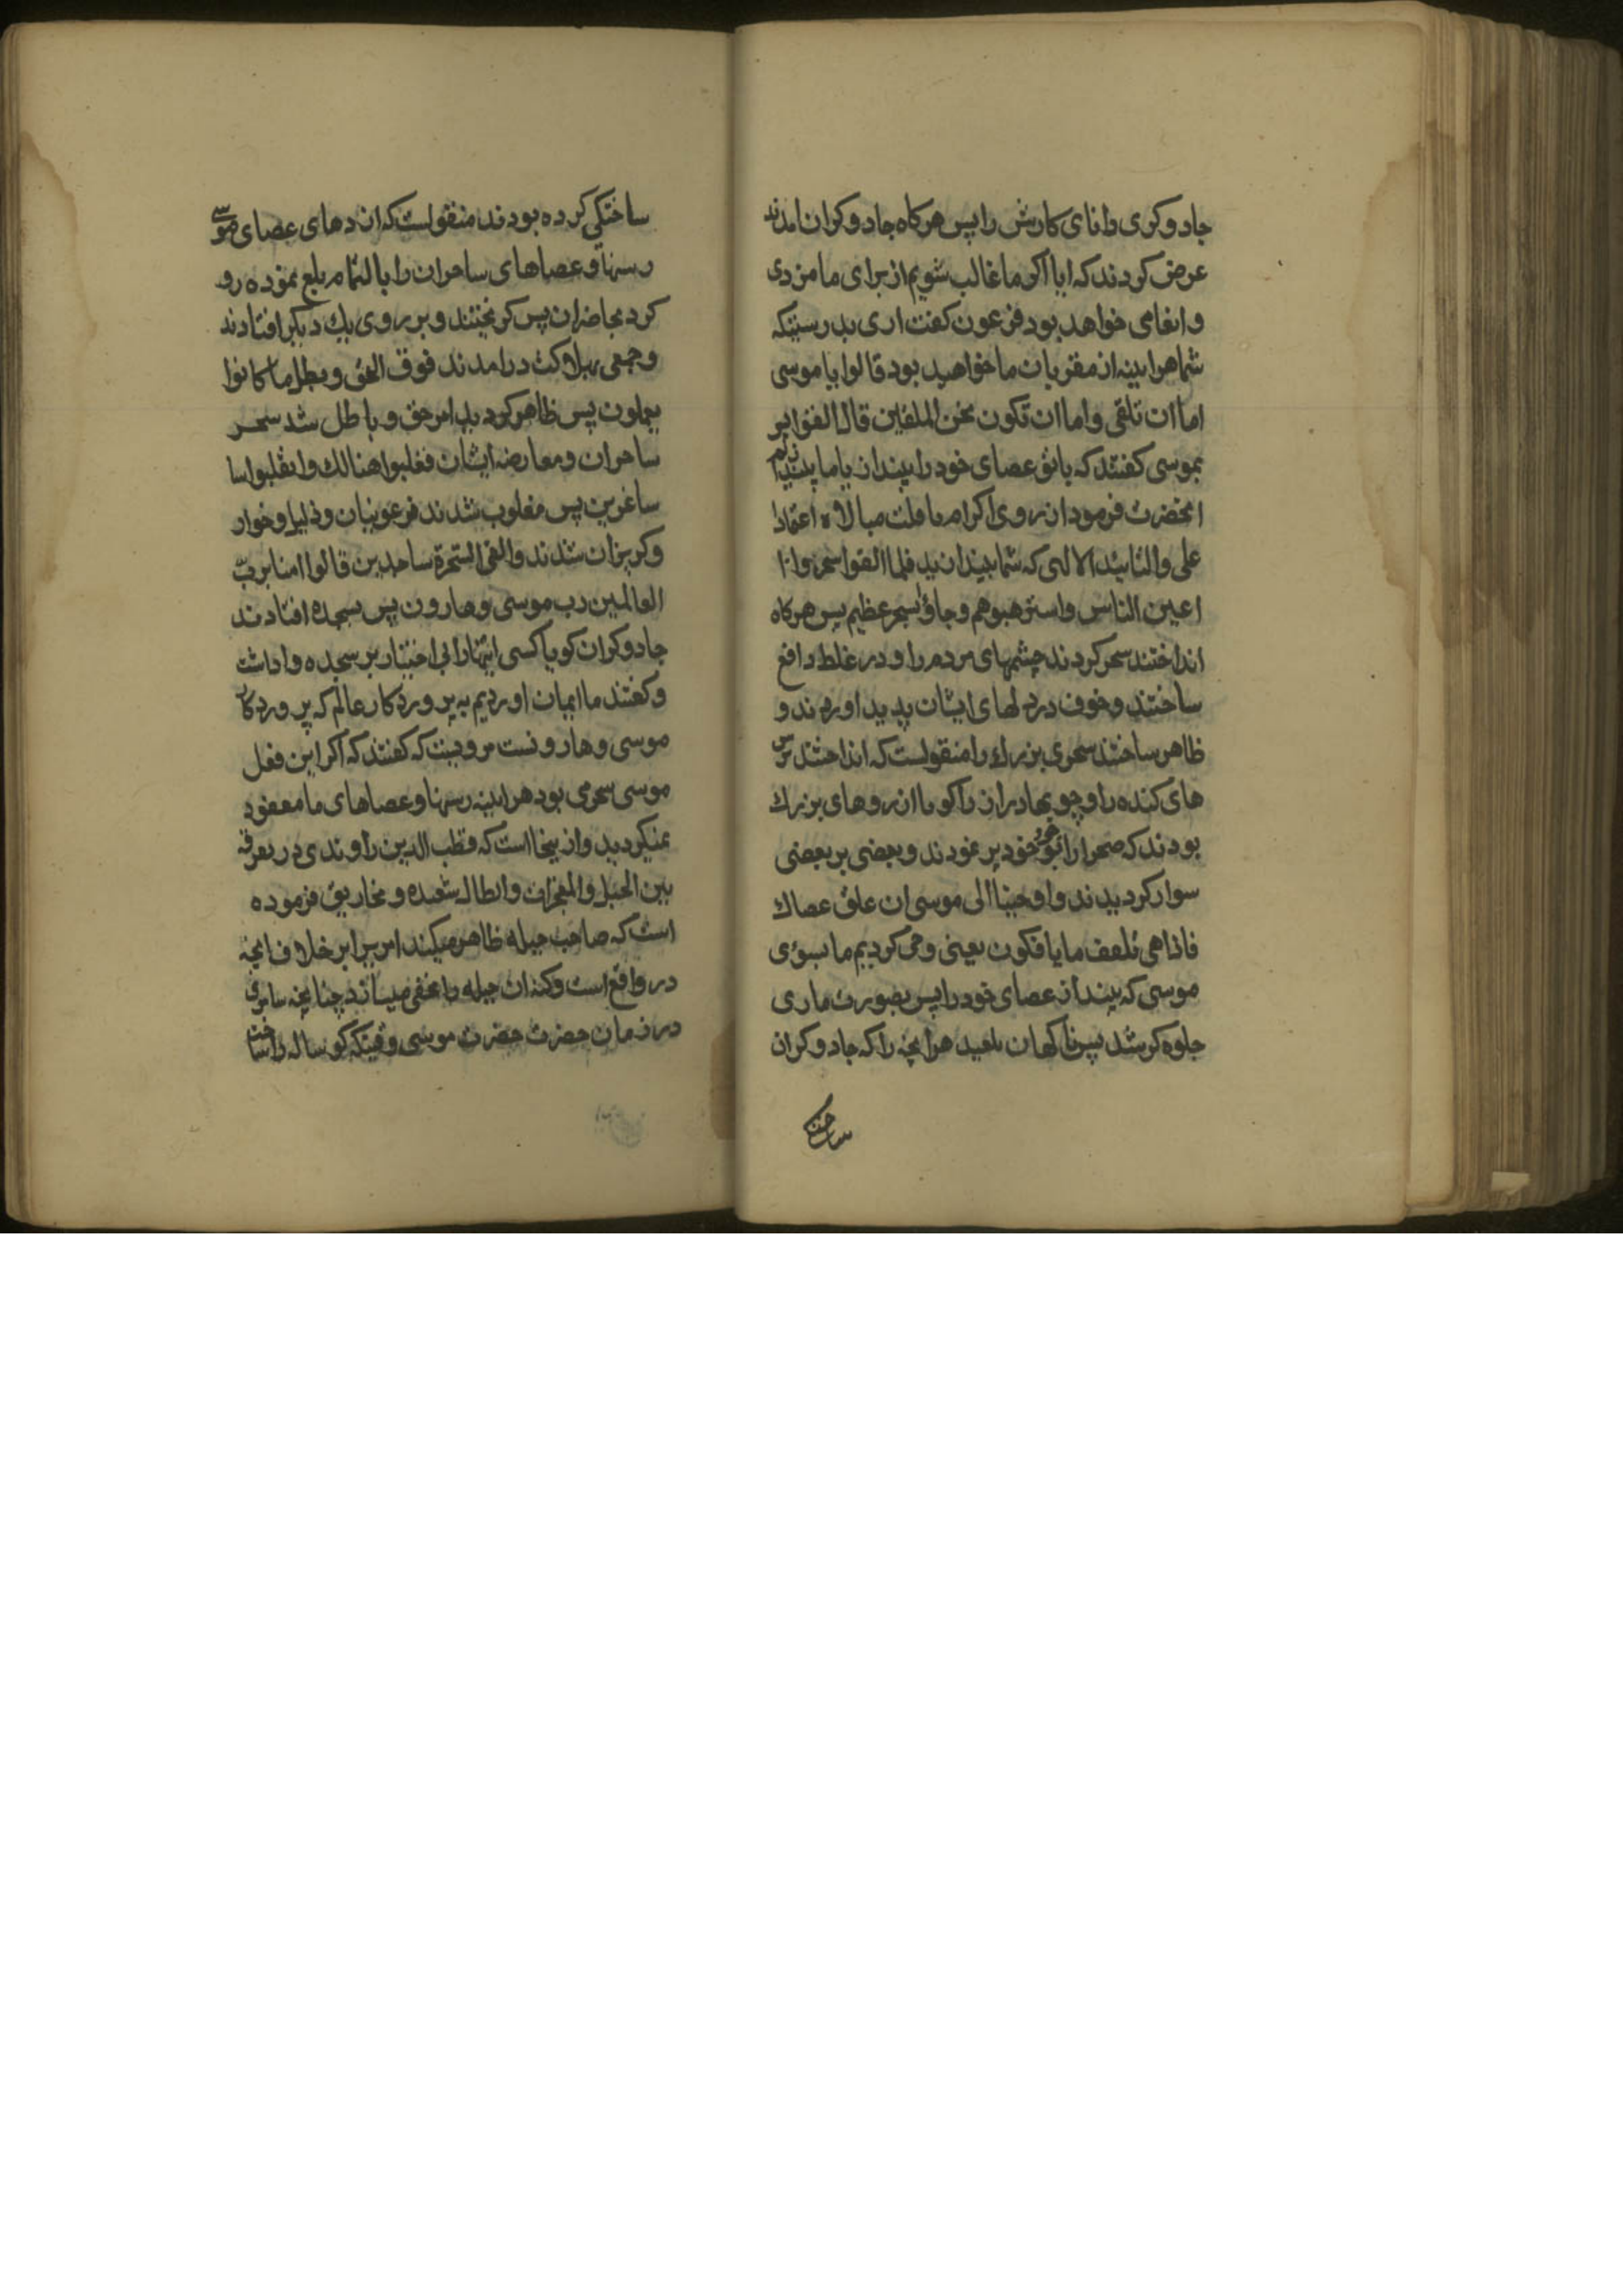 جادوکری دانای کارش را پس هرکاه جادوکران امدند
عرض کردند که ایا اکر ما غالب شویم از برای ما مزدی
وانعامی خواهد بود فرعون کفت اری بدرستیکه
شما هراینه از مقربان ما خواهید بود قالوا یا موسی
اما ان تلقی واما ان نکون نحن الملقین قال القوا پس
بموسی کفتند که یا تو عصای خود را بینداز یا ما بیندازیم
انحضرت فرمود از روی اکرام یا قلت مبالاه اعتمادا
علی والتائید الالهی که شما بیندازید فلما القوا سحروا
اعین الناس واسترهبوهم وجاؤا بسحر عظیم پس هرکاه
انداختند سحر کردند چشمهای مردم را و در غلط واقع
ساختند وخوف در دلهای ایشان پدید اوردند و
ظاهر ساختند سحری بزرك را منقولست که انداختند رس
های کنده را وچوبهای دراز را کویا اژدرهای بزرك
بودند که صحرا را بوجود خود پر نمودند وبعضی بر بعضی
سوار کردیدند واوحینا الی موسی ان علق عصاك
فاذا هی تلقف ما یافکون یعنی وحی کردیم ما بسوی
موسی که بینداز عصای خود را پس بصورت ماری
جلوه کر شد پس ناکهان بلعید هرانچه را که جادوکران
ساختکی
ساختکی کرده بودند منقولست که اژدهای عصای موسی
رسنها وعصاهای ساحران را بالتمام بلع نموده رو
کرد بحاضران پس کریختند و بر روی یك دیکر افتادند
وجمعی بهلاکت درامدند فوقع الحق وبطل ما کانوا
یعملون پس ظاهر کردید امر حق و باطل شد سحر
ساحران ومعارضه ایشان فغلبوا هنالك وانقلبوا سا
ساغرین پس مغلوب شدند فرعونیان وذلیل وخوار
وکریزان شدند والقی السحرة ساجدین قالوا امنا برب
العالمین رب موسی وهارون پس بسجده افتادند
جادوکران کویا کسی اینها را بی اختیار بر سجده واداشت
وکفتند ما ایمان اوردیم به پروردکار عالم که پروردکار
موسی وهارونست مرویست که کفتند که اکر این فعل
موسی سحر می بود هراینه رسنها وعصاهای ما مفقود
نمیکردید واز اینجا است که قطب الدین راوندی در تفرقه
بین الحیل والمعجزات وابطال شعبده ومخاریق فرموده
است که صاحب حیله ظاهر میکند امریرا بر خلاف انچه
در واقع است وکنه ان حیله را مخفی میسازد چنانچه سامری
در زمان حضرت حضرت موسی وقتیکه کوساله را ساخت